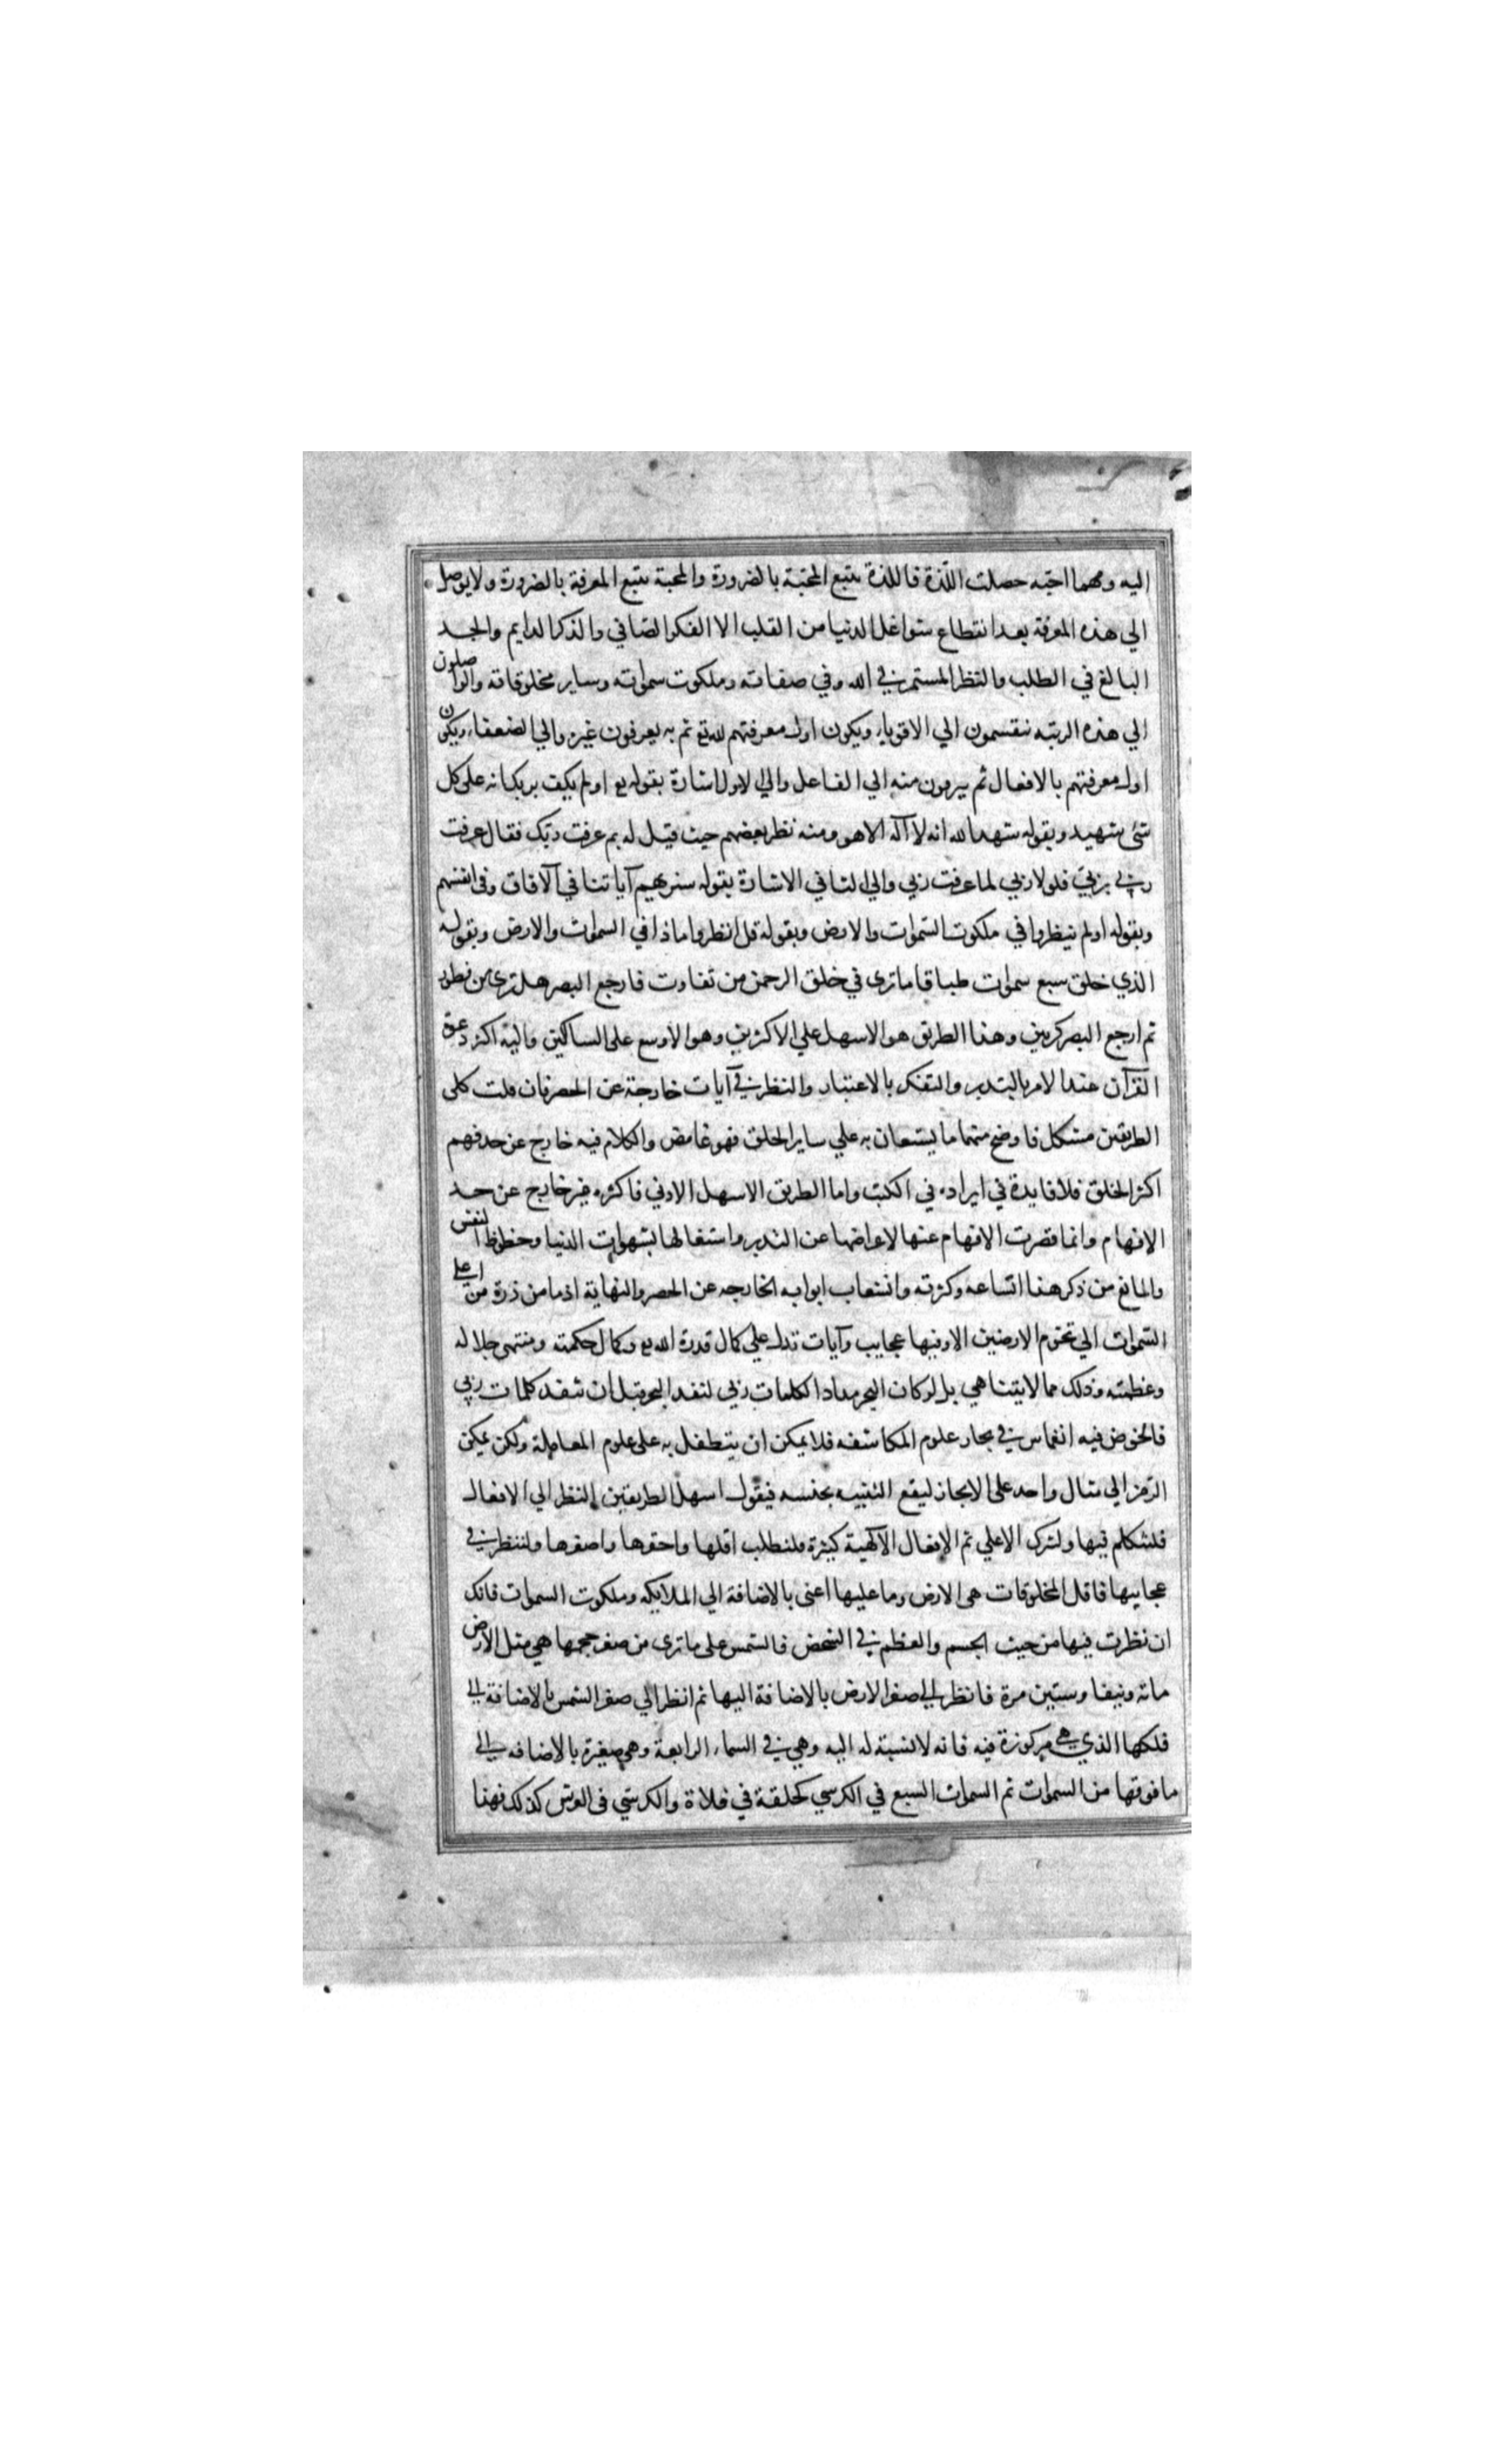 اليه ومهما احبه حصلت اللذة فاللذة يتبع المحبة بالضرورة والمحبة يتبع المعرفة بالضرورة ولا يوصل
الي هذه المعرفة بعد انقطاع شواغل الدنيا من القلب الا الفكر الصافي والذكر الدايم والجد
البالغ في الطلب والنظر المستمر في الله وفي صفاته وملكوت سمواته وساير مخلوقاته والواصلون
الي هذه الرتبة ينقسمون الي الاقوياء ويكون اول معرفتهم لله تع ثم به يعرفون غيره والي الضعفاء ويكون
اول معرفتهم بالافعال ثم يرمون منه الي الفاعل والي الاول اشارة بقوله تع اولم يكف بربك انه على كل
شئ شهيد وبقوله شهد الله انه لا اله الا هو ومنه نظر بعضهم حيث قيل له بم عرفت ربك فقال عرفت
ربي بربي فلولا ربي لما عرفت ربي والي الثاني الاشارة بقوله سنريهم آياتنا في الآفاق وفى انفسهم
وبقوله اولم ينظروا في ملكوت السموات والارض وبقوله قل انظروا ماذا في السموات والارض وبقوله
الذي خلق سبع سموات طباقا ما ترى في خلق الرحمن من تفاوت فارجع البصر هل ترى من فطور
ثم ارجع البصر كرتين وهذا الطريق هو الاسهل علي الاكثرين وهو الاوسع على السالكين واليه اكثر دعوة
القرآن عند الامر بالتدبر والتفكر بالاعتبار والنظر في آيات خارجة عن الحصر فان قلت كلى
الطريقين مشكل فاوضح منهما ما يستعان به علي ساير الخلق فهو غامض والكلام فيه خارج عن حد فهم
اكثر الخلق فلا فايدة في ايراده في الكتب واما الطريق الاسهل الادني فاكثره غير خارج عن حد
الافهام وانما قصرت الافهام عنها لاعراضها عن التدبر واشتغالها بشهوات الدنيا وحظوظ النفس
والمانع من ذكر هذا اتساعه وكثرته وانشعاب ابوابه الخارجه عن الحصر والنهاية اذ ما من ذرة من اعلي
السموات الي تخوم الارضين الا وفيها عجايب وآيات تدل علي كمال قدرة الله تع وكمال حكمته ومنتهى جلاله
وعظمته وذلك مما لا يتناهي بل لو كان البحر مدادا لكلمات ربي لنفد البحر قبل ان تنفد كلمات ربي
فالخوض فيه انغماس في بحار علوم المكاشفه فلا يمكن ان يتطفل به على علوم المعاملة ولكن يمكن
الرمز الي مثال واحد على الايجاز ليقع التنبيه بجنسه فيقول اسهل الطريقين النظر الي الافعال
فلنتكلم فيها ولنترك الاعلي ثم الافعال الآلهية كثيرة فلنطلب اقلها واحقرها واصغرها ولننظر في
عجايبها فاقل المخلوقات هى الارض وما عليها اعنى بالاضافة الي الملايكه وملكوت السموات فانك
ان نظرت فيها من حيث الجسم والعظم في الشخص فالشمس على ما ترى من صغر حجمها هي مثل الارض
مائه ونيفا وستين مرة فانظر الي صغر الارض بالاضافة اليها ثم انظر الي صغر الشمس بالاضافة الي
فلكها الذي هي مركوزة فيه فانه لا نسبة له اليه وهي في السماء الرابعة وهي صغيرة بالاضافه الي
ما فوقها من السموات ثم السموات السبع في الكرسي كحلقة في فلاة والكرسي فى العرش كذلك فهذا